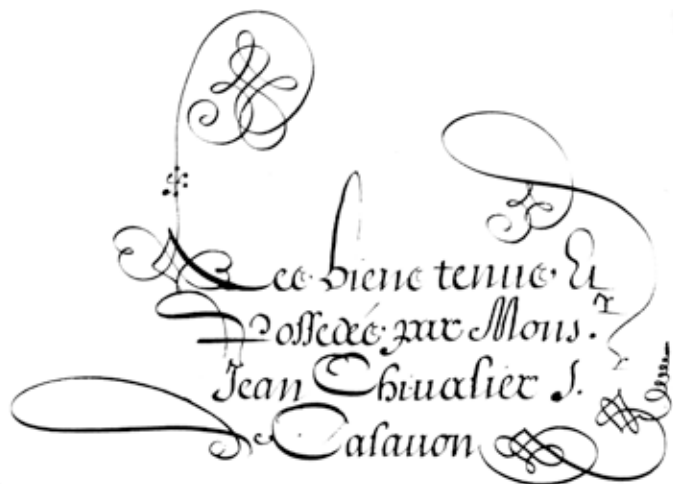 Les biens tenus. Et
Possedés par Mons.r
Jean Chivalier S.
Calavon